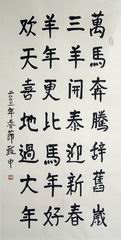 萬馬奔騰辭舊歲
三羊開泰迎新春
羊年更比馬年好
欢天喜地過大年
年春節